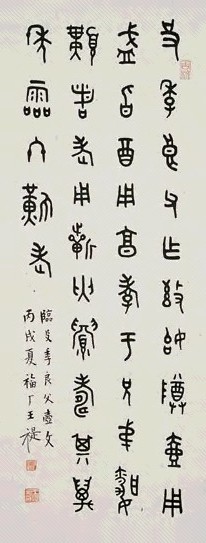 殳季良父乍敄姒尊壺用
盛旨酉用享孝于兄弟婚
顜者老用祈匄眉壽其萬
年霝冬難老
臨殳季良父壺文
丙戌夏福厂王禔